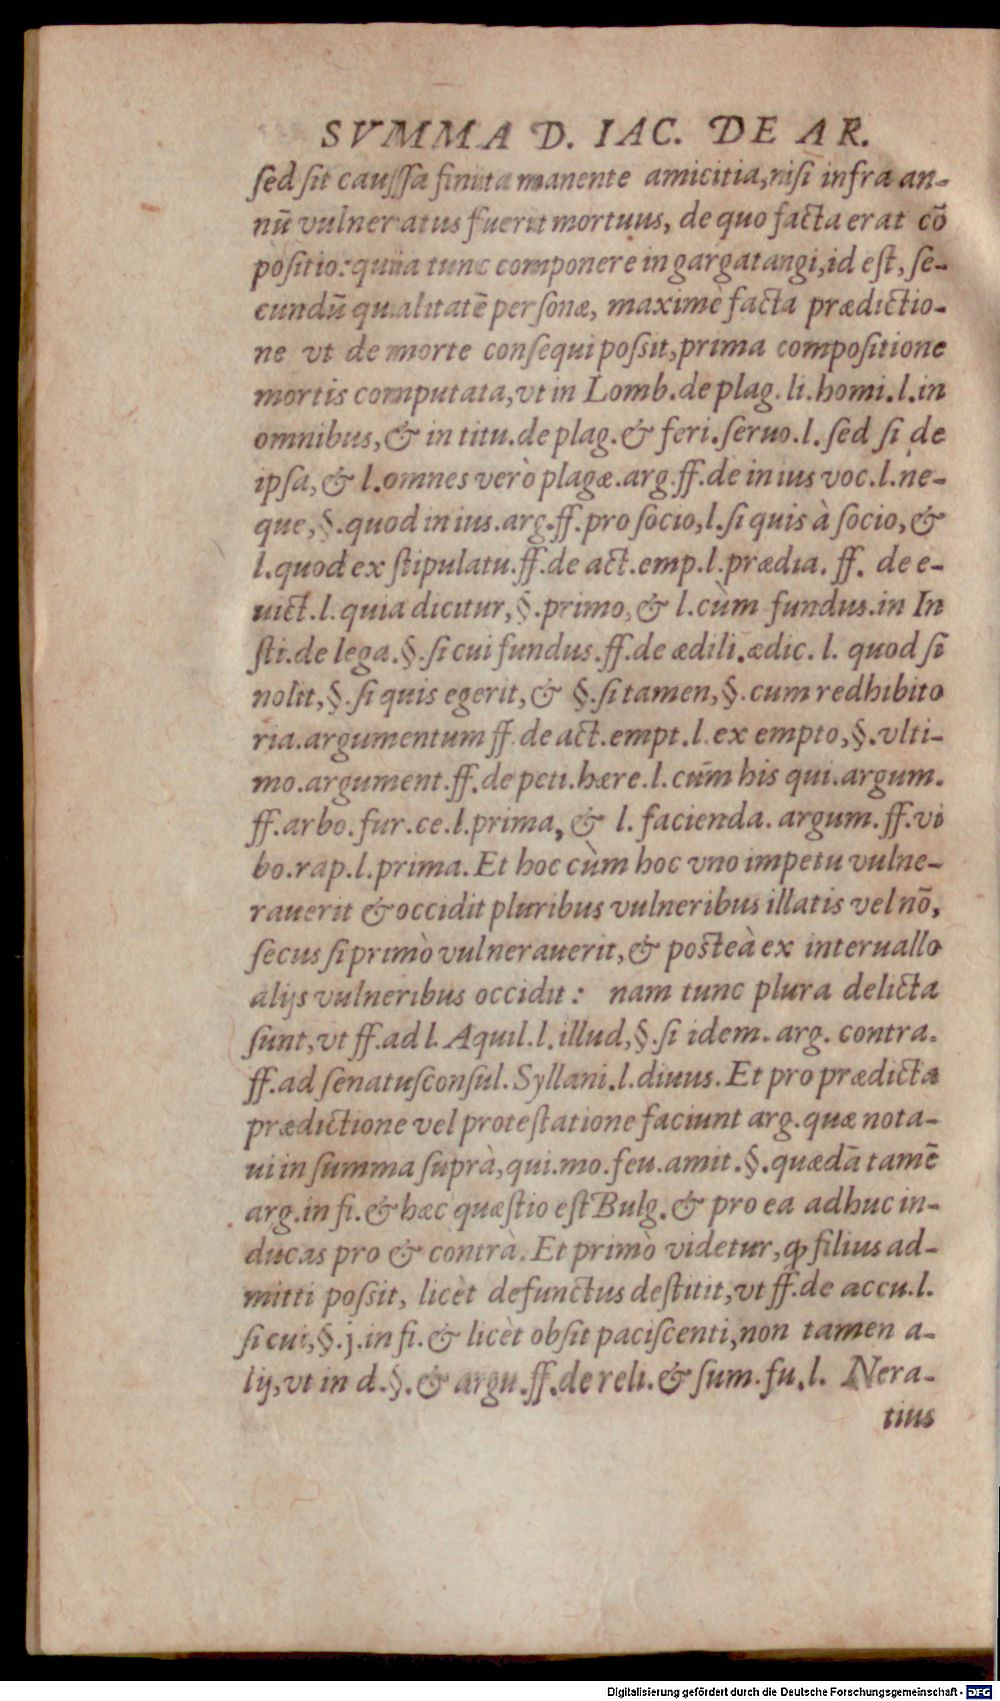 SVMMA D. IAC. DE AR.
sed sit caussa finita manente amicitia, nisi infra an-
nũ vulneratus fuerit mortuus, de quo facta erat cõ
positio: quia tunc componere in gargatangi, id est, se-
cundũ qualitatẽ personæ, maximè facta prædictio-
ne vt de morte consequi possit, prima compositione
mortis computata, vt in Lomb. de plag. li. homi. l. in
omnibus, & in titu. de plag. & feri. seruo. l. sed si de
ipsa, & l. omnes verò plagæ. arg. ff. de in ius voc. l. ne-
que, §. quod in ius. arg. ff. pro socio, l. si quis à socio, &
l. quod ex stipulatu. ff. de act. emp. l. prædia. ff. de e-
uict. l. quia dicitur, §. primo, & l. cùm fundus. in In
sti. de lega. §. si cui fundus. ff. de ædili. ædic. l. quod si
nolit, §. si quis egerit, & §. si tamen, §. cum redhibito
ria. argumentum ff. de act. empt. l. ex empto, §. vlti-
mo. argument. ff. de peti. hære. l. cũm his qui. argum.
ff. arbo. fur. ce. l. prima, & l. facienda. argum. ff. vi
bo. rap. l. prima. Et hoc cùm hoc vno impetu vulne-
rauerit & occidit pluribus vulneribus illatis vel nõ,
secus si primò vulnerauerit, & posteà ex interuallo
alijs vulneribus occidit: nam tunc plura delicta
sunt, vt ff. ad l. Aquil. l. illud, §. si idem. arg. contra.
ff. ad senatusconsul. Syllani. l. diuus. Et pro prædicta
prædictione vel protestatione faciunt arg. quæ nota-
ui in summa suprà, qui. mo. feu. amit. §. quædã tamẽ
arg. in fi. & hæc quæstio est Bulg. & pro ea adhuc in-
ducas pro & contrà. Et primò videtur, ꝙ filius ad-
mitti possit, licèt defunctus destitit, vt ff. de accu. l.
si cui, §. j. in fi. & licèt obsit paciscenti, non tamen a-
lij, vt in d. §. & argu. ff. de reli. & sum. fu. l. Nera-
tius
Digitalisierung gefördert durch die Deutsche Forschungsgemeinschaft - DFG